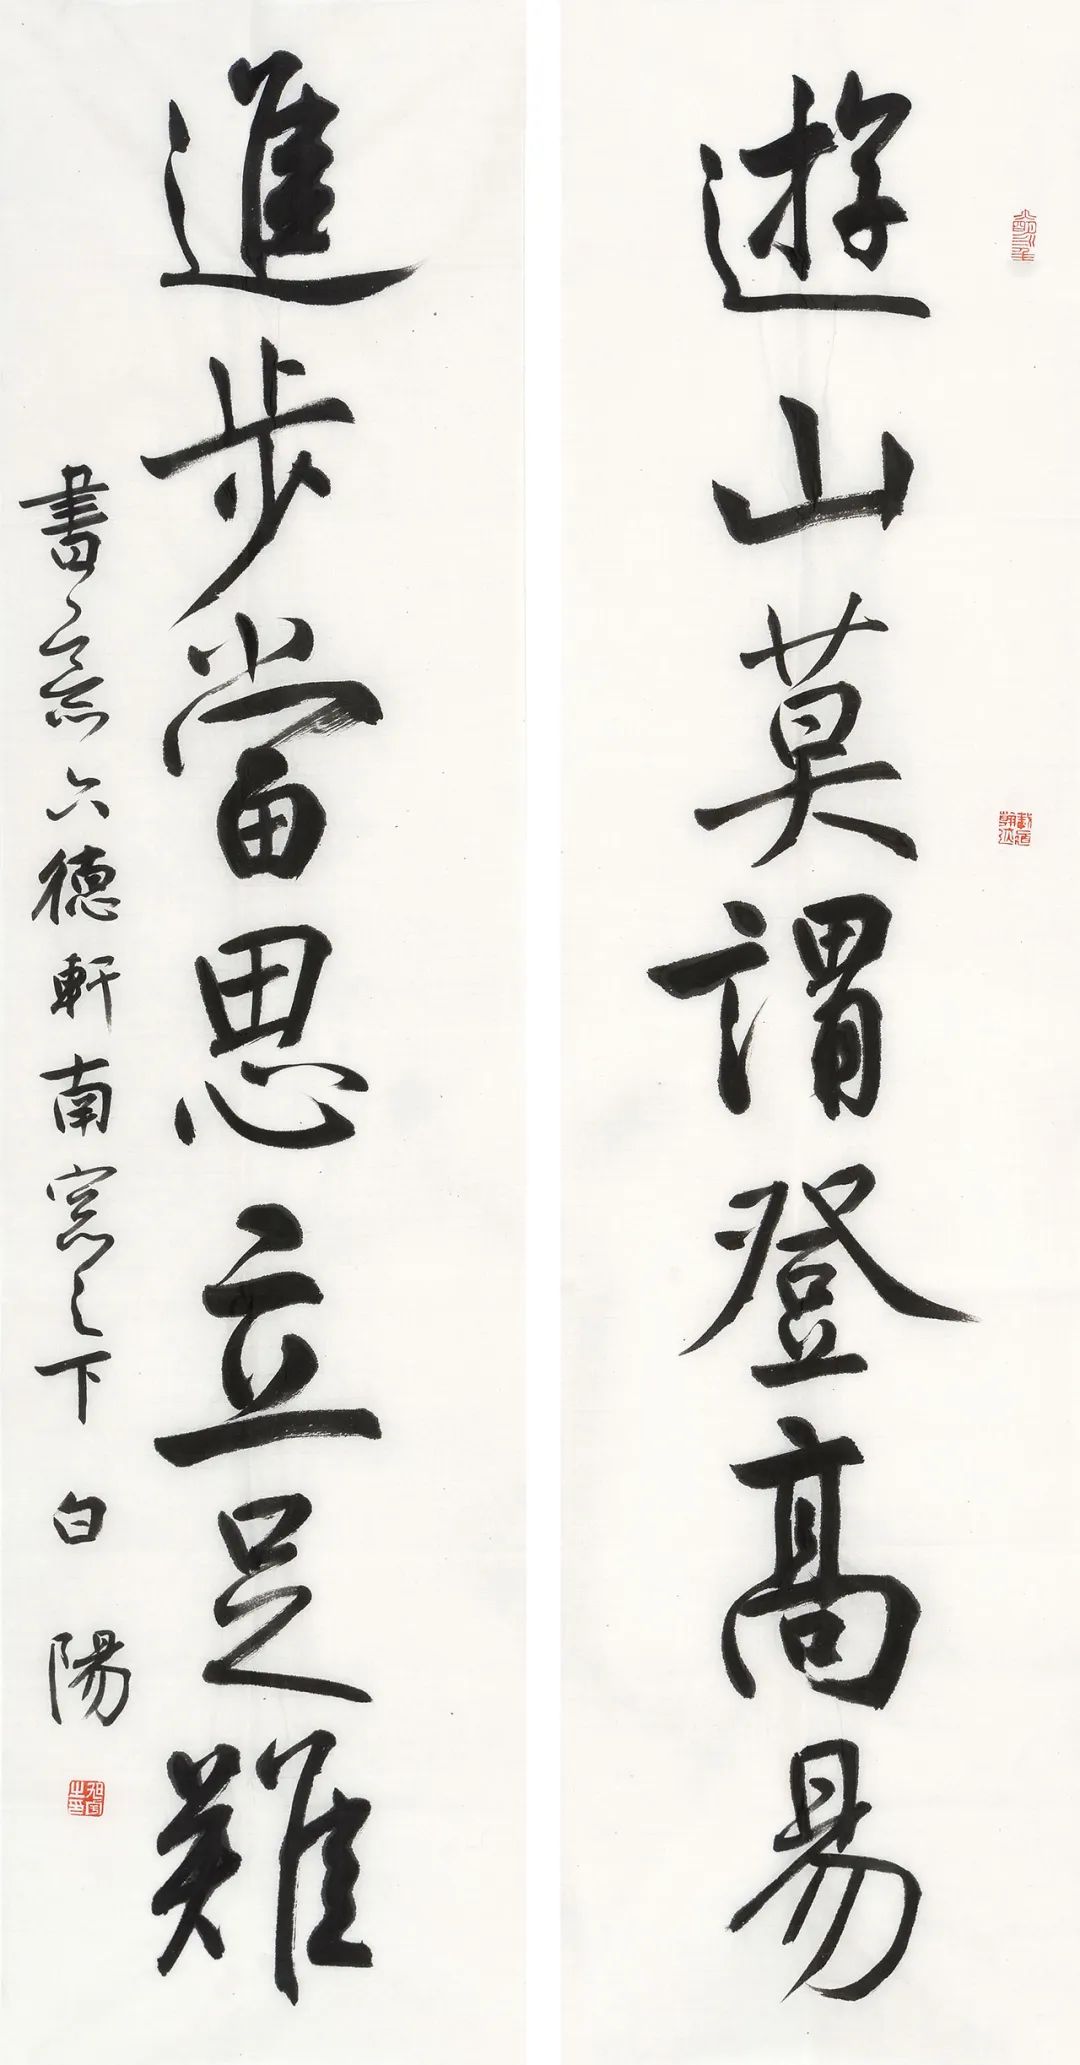 遊山莫謂登高易
進步當思立足難
書六德軒南窓之下 白陽